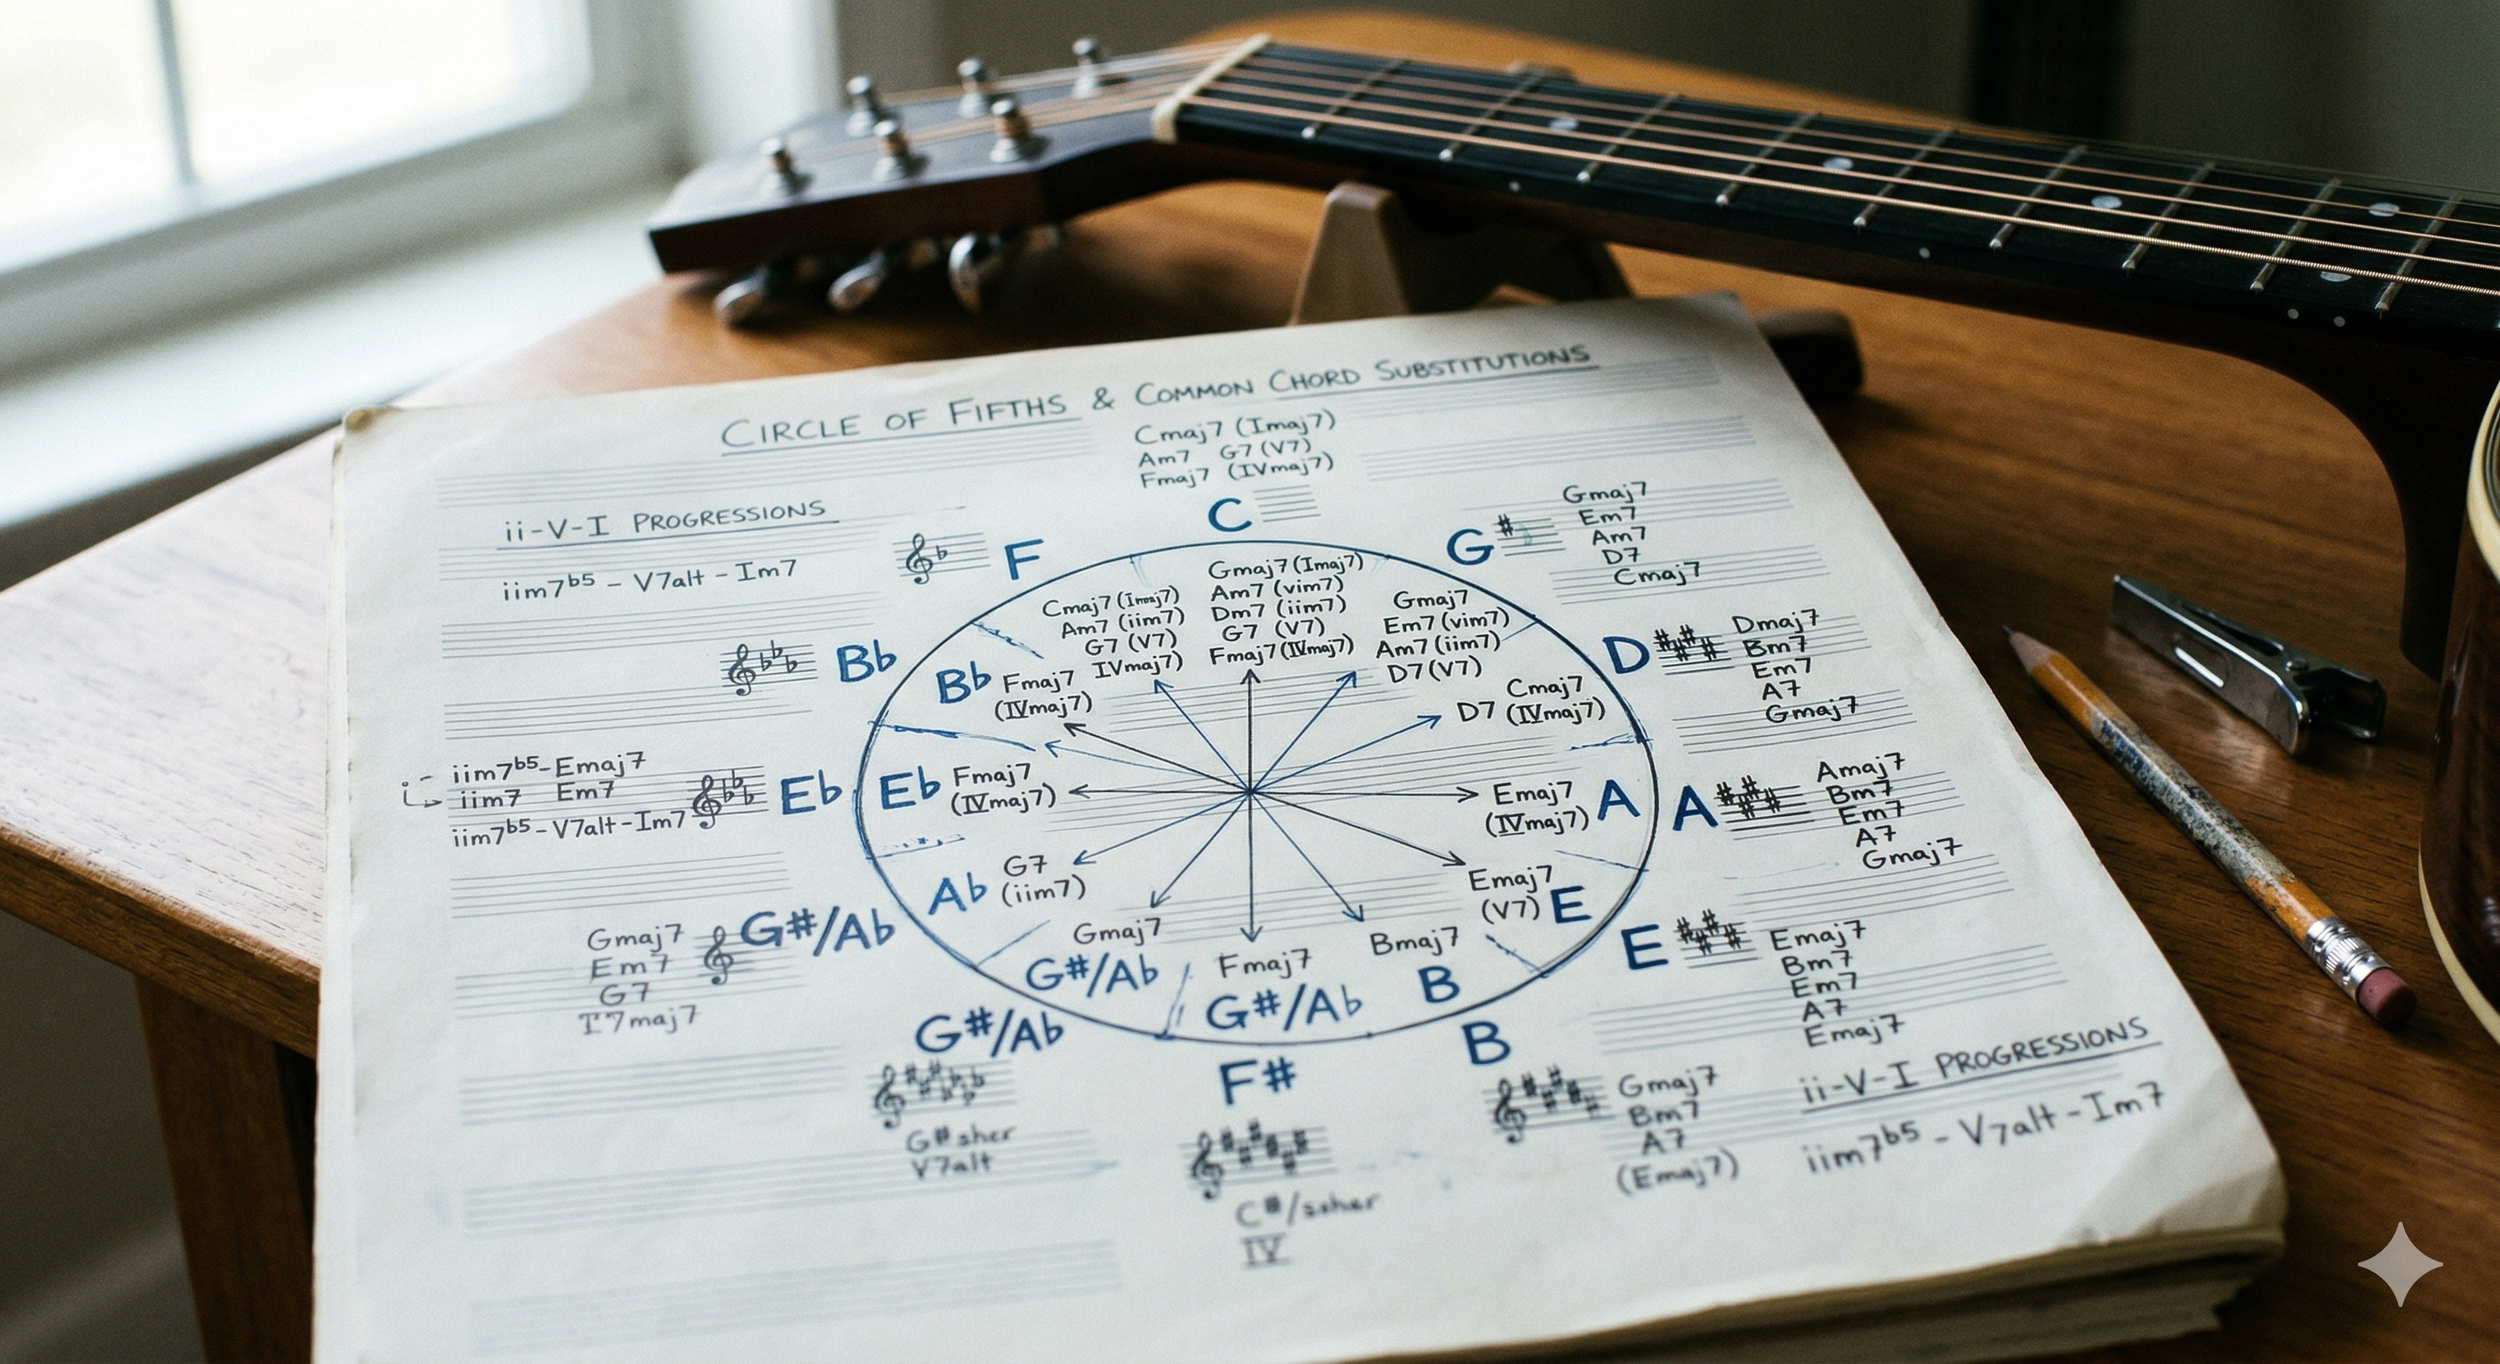 CIRCLE OF FIFTHS & COMMON CHORD SUBSTITUTIONS
Cmaj7 (Imaj7)
Am7 G7 (V7)
Fmaj7 (IVmaj7)
C
ii-V-I PROGRESSIONS
iim7b5 - V7alt - Im7
F
Bb
iim7b5-Emaj7
iim7 Em7
iim7b5-V7alt-Im7
Eb
G#/Ab
Gmaj7
Em7
G7
G#/Ab
V7alt
F#
IV
B
Gmaj7
Bm7
A7
(Emaj7)
G
Gmaj7
Em7
Am7
D7
Cmaj7
D
Dmaj7
Bm7
Em7
A7
Gmaj7
A
Amaj7
Bm7
Em7
A7
Gmaj7
E
Emaj7
Bm7
Em7
A7
Emaj7
ii-V-I PROGRESSIONS
iim7b5 - V7alt - Im7
Cmaj7 (Imaj7)
Am7 (iim7)
G7 (V7)
IVmaj7)
Gmaj7 (Imaj7)
Am7 (vim7)
Dm7 (iim7)
G7 (V7)
Fmaj7 (IVmaj7)
Gmaj7
Em7 (vim7)
Am7 (iim7)
D7 (V7)
Cmaj7
D7 (IVmaj7)
Emaj7
(IVmaj7)
A
Emaj7
(V7)
E
Bmaj7
B
Fmaj7
G#/Ab
Gmaj7
G#/Ab
Ab
G7
(iim7)
Eb
Fmaj7
(IVmaj7)
Bb
Fmaj7
(IVmaj7)